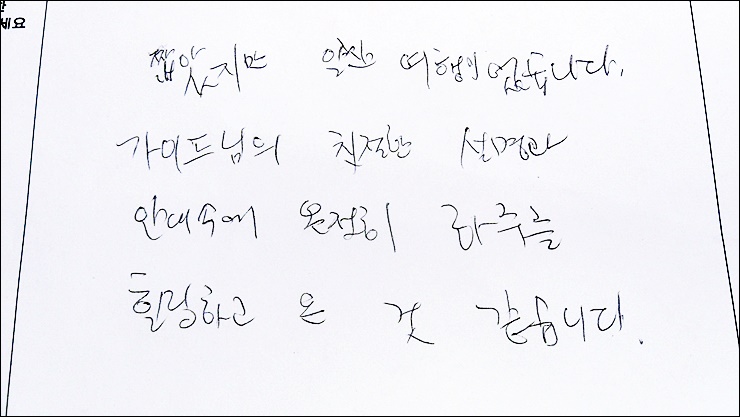 짧았지만 알찬 여행이었습니다.
가이드님의 친절한 설명과
안내속에 온전히 라주를
힐링하고 온 것 같습니다.